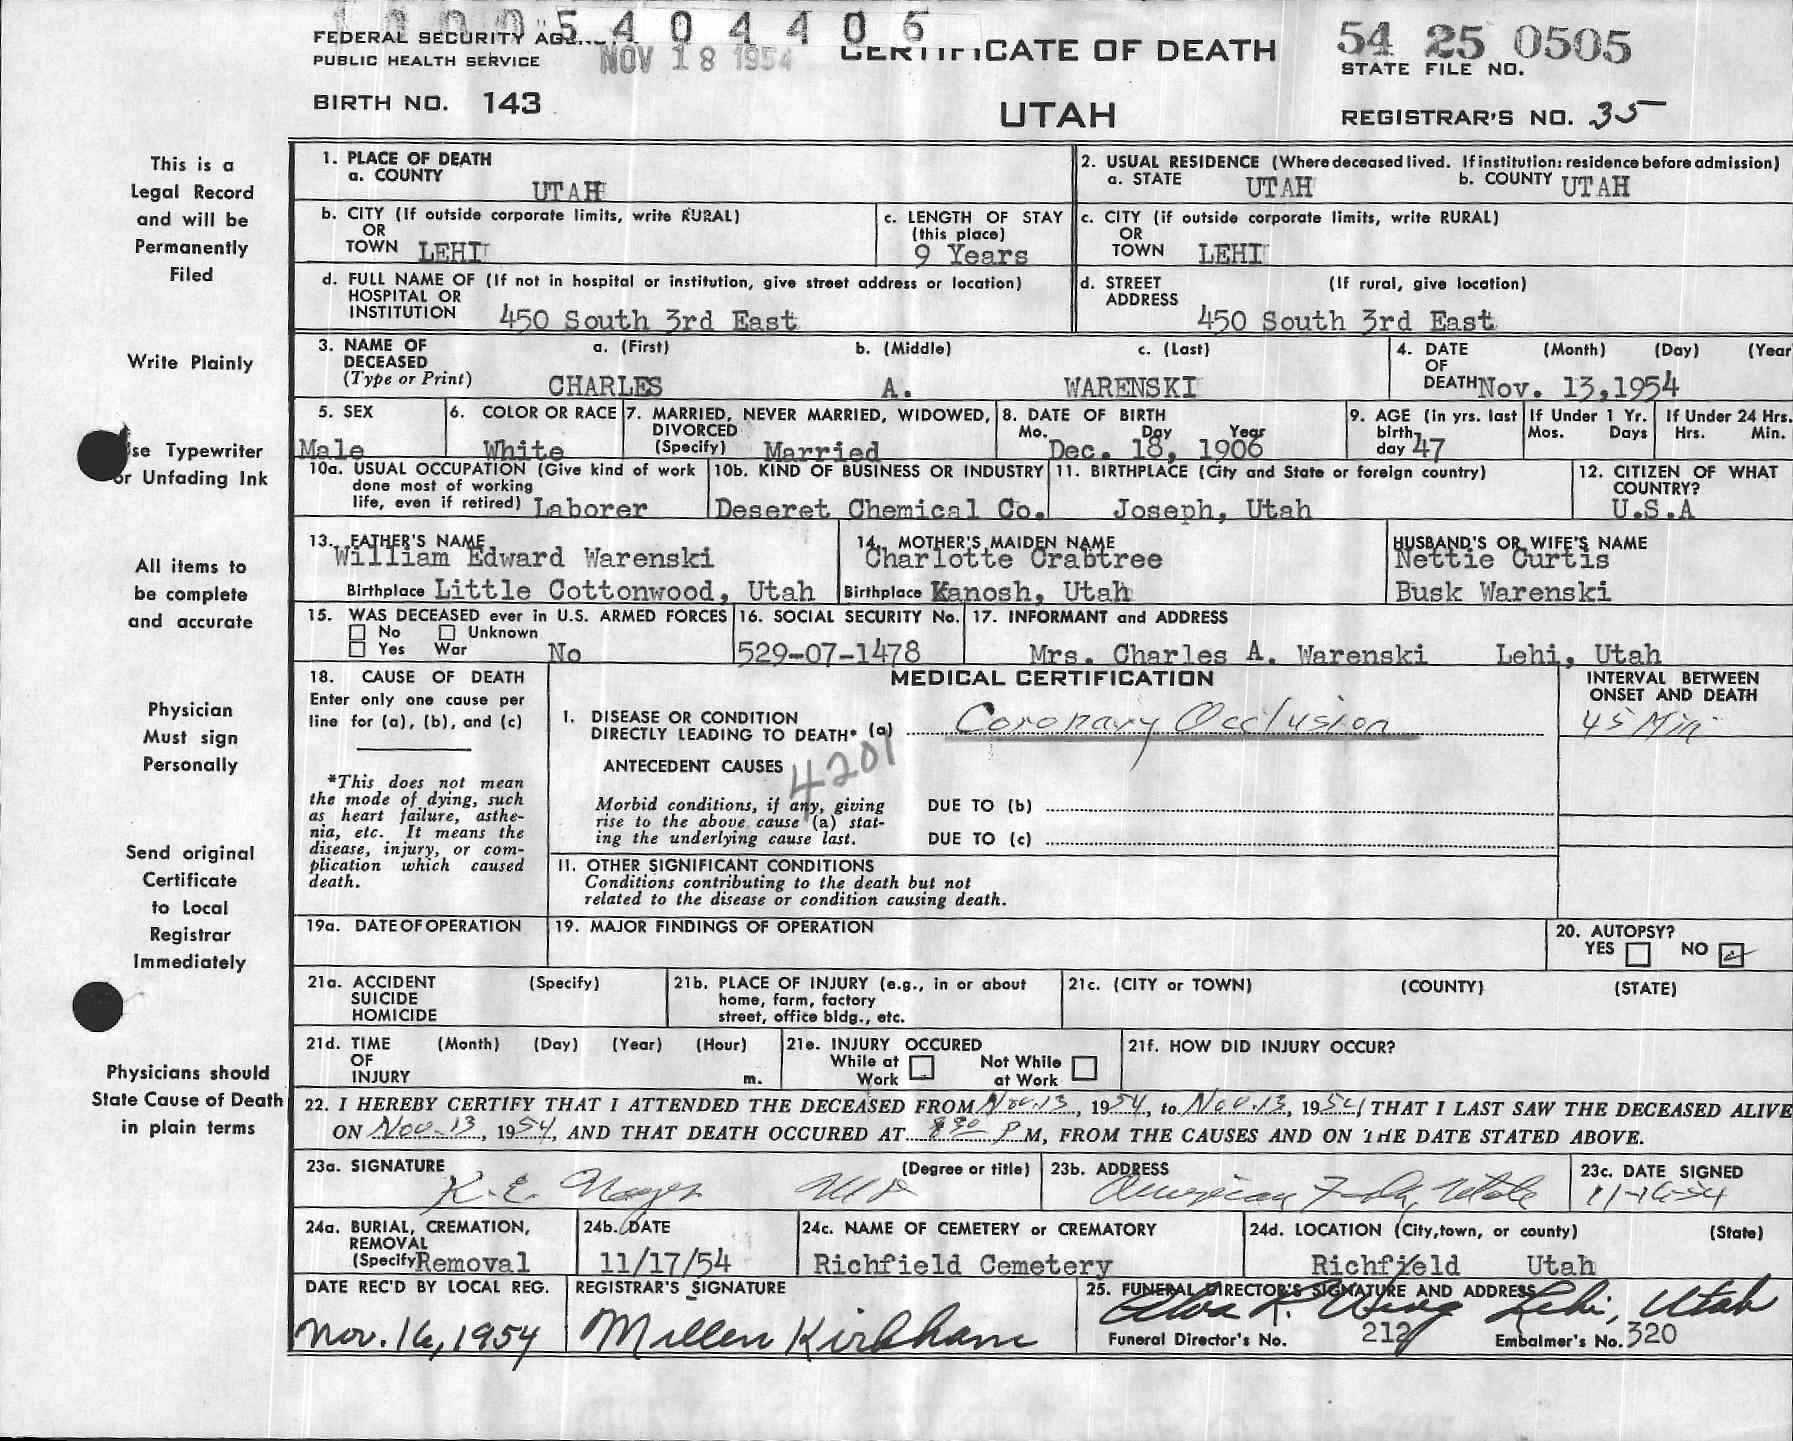 1000 5 4 0 4 4 0 6
FEDERAL SECURITY AG
PUBLIC HEALTH SERVICE
NOV 18 1954
CERTIFICATE OF DEATH
54 25 0505
STATE FILE NO.
BIRTH NO. 143
UTAH
REGISTRAR'S NO. 35
This is a
Legal Record
and will be
Permanently
Filed
Write Plainly
se Typewriter
or Unfading Ink
All items to
be complete
and accurate
Physician
Must sign
Personally
Send original
Certificate
to Local
Registrar
Immediately
Physicians should
State Cause of Death
in plain terms
1. PLACE OF DEATH
a. COUNTY
UTAH
2. USUAL RESIDENCE (Where deceased lived. If institution: residence before admission)
a. STATE UTAH b. COUNTY UTAH
b. CITY (If outside corporate limits, write RURAL)
OR
TOWN LEHI
c. LENGTH OF STAY
(this place)
9 Years
c. CITY (if outside corporate limits, write RURAL)
OR
TOWN LEHI
d. FULL NAME OF (If not in hospital or institution, give street address or location)
HOSPITAL OR
INSTITUTION 450 South 3rd East
d. STREET (If rural, give location)
ADDRESS
450 South 3rd East
3. NAME OF a. (First) b. (Middle) c. (Last)
DECEASED
(Type or Print) CHARLES A. WARENSKI
4. DATE (Month) (Day) (Year
OF
DEATH Nov. 13,1954
5. SEX
Male
6. COLOR OR RACE
White
7. MARRIED, NEVER MARRIED, WIDOWED,
DIVORCED
(Specify) Married
8. DATE OF BIRTH
Mo. Day Year
Dec. 18, 1906
9. AGE (in yrs. last
birth
day 47
If Under 1 Yr.
Mos. Days
If Under 24 Hrs.
Hrs. Min.
10a. USUAL OCCUPATION (Give kind of work
done most of working
life, even if retired) Laborer
10b. KIND OF BUSINESS OR INDUSTRY
Deseret Chemical Co.
11. BIRTHPLACE (City and State or foreign country)
Joseph, Utah
12. CITIZEN OF WHAT
COUNTRY?
U.S.A
13. FATHER'S NAME
William Edward Warenski
Birthplace Little Cottonwood, Utah
14. MOTHER'S MAIDEN NAME
Charlotte Crabtree
Birthplace Kanosh, Utah
HUSBAND'S OR WIFE'S NAME
Nettie Curtis
Busk Warenski
15. WAS DECEASED ever in U.S. ARMED FORCES
No Unknown
Yes War No
16. SOCIAL SECURITY No.
529-07-1478
17. INFORMANT and ADDRESS
Mrs. Charles A. Warenski Lehi, Utah
18. CAUSE OF DEATH
Enter only one cause per
line for (a), (b), and (c)
*This does not mean
the mode of dying, such
as heart failure, asthe-
nia, etc. It means the
disease, injury, or com-
plication which caused
death.
MEDICAL CERTIFICATION
INTERVAL BETWEEN
ONSET AND DEATH
I. DISEASE OR CONDITION
DIRECTLY LEADING TO DEATH* (a) Coronary Occlusion
45 Min
ANTECEDENT CAUSES 4201
Morbid conditions, if any, giving
rise to the above cause (a) stat-
ing the underlying cause last.
DUE TO (b)
DUE TO (c)
II. OTHER SIGNIFICANT CONDITIONS
Conditions contributing to the death but not
related to the disease or condition causing death.
19a. DATE OF OPERATION
19. MAJOR FINDINGS OF OPERATION
20. AUTOPSY?
YES NO
21a. ACCIDENT (Specify)
SUICIDE
HOMICIDE
21b. PLACE OF INJURY (e.g., in or about
home, farm, factory
street, office bldg., etc.
21c. (CITY or TOWN) (COUNTY) (STATE)
21d. TIME (Month) (Day) (Year) (Hour)
OF
INJURY m.
21e. INJURY OCCURED
While at Not While
Work at Work
21f. HOW DID INJURY OCCUR?
22. I HEREBY CERTIFY THAT I ATTENDED THE DECEASED FROM Nov. 13, 1954, to Nov. 13, 1954, THAT I LAST SAW THE DECEASED ALIVE
ON Nov. 13, 1954, AND THAT DEATH OCCURED AT 8 30 P M, FROM THE CAUSES AND ON THE DATE STATED ABOVE.
23a. SIGNATURE (Degree or title)
K. E. MD
23b. ADDRESS
American Fork, Utah
23c. DATE SIGNED
11-16-54
24a. BURIAL, CREMATION,
REMOVAL
(Specify Removal
24b. DATE
11/17/54
24c. NAME OF CEMETERY or CREMATORY
Richfield Cemetery
24d. LOCATION (City,town, or county) (State)
Richfield Utah
DATE REC'D BY LOCAL REG.
Nov. 16, 1954
REGISTRAR'S SIGNATURE
Millen Kirkham
25. FUNERAL DIRECTOR'S SIGNATURE AND ADDRESS
Elva R. Wing Lehi, Utah
Funeral Director's No. 212 Embalmer's No. 320